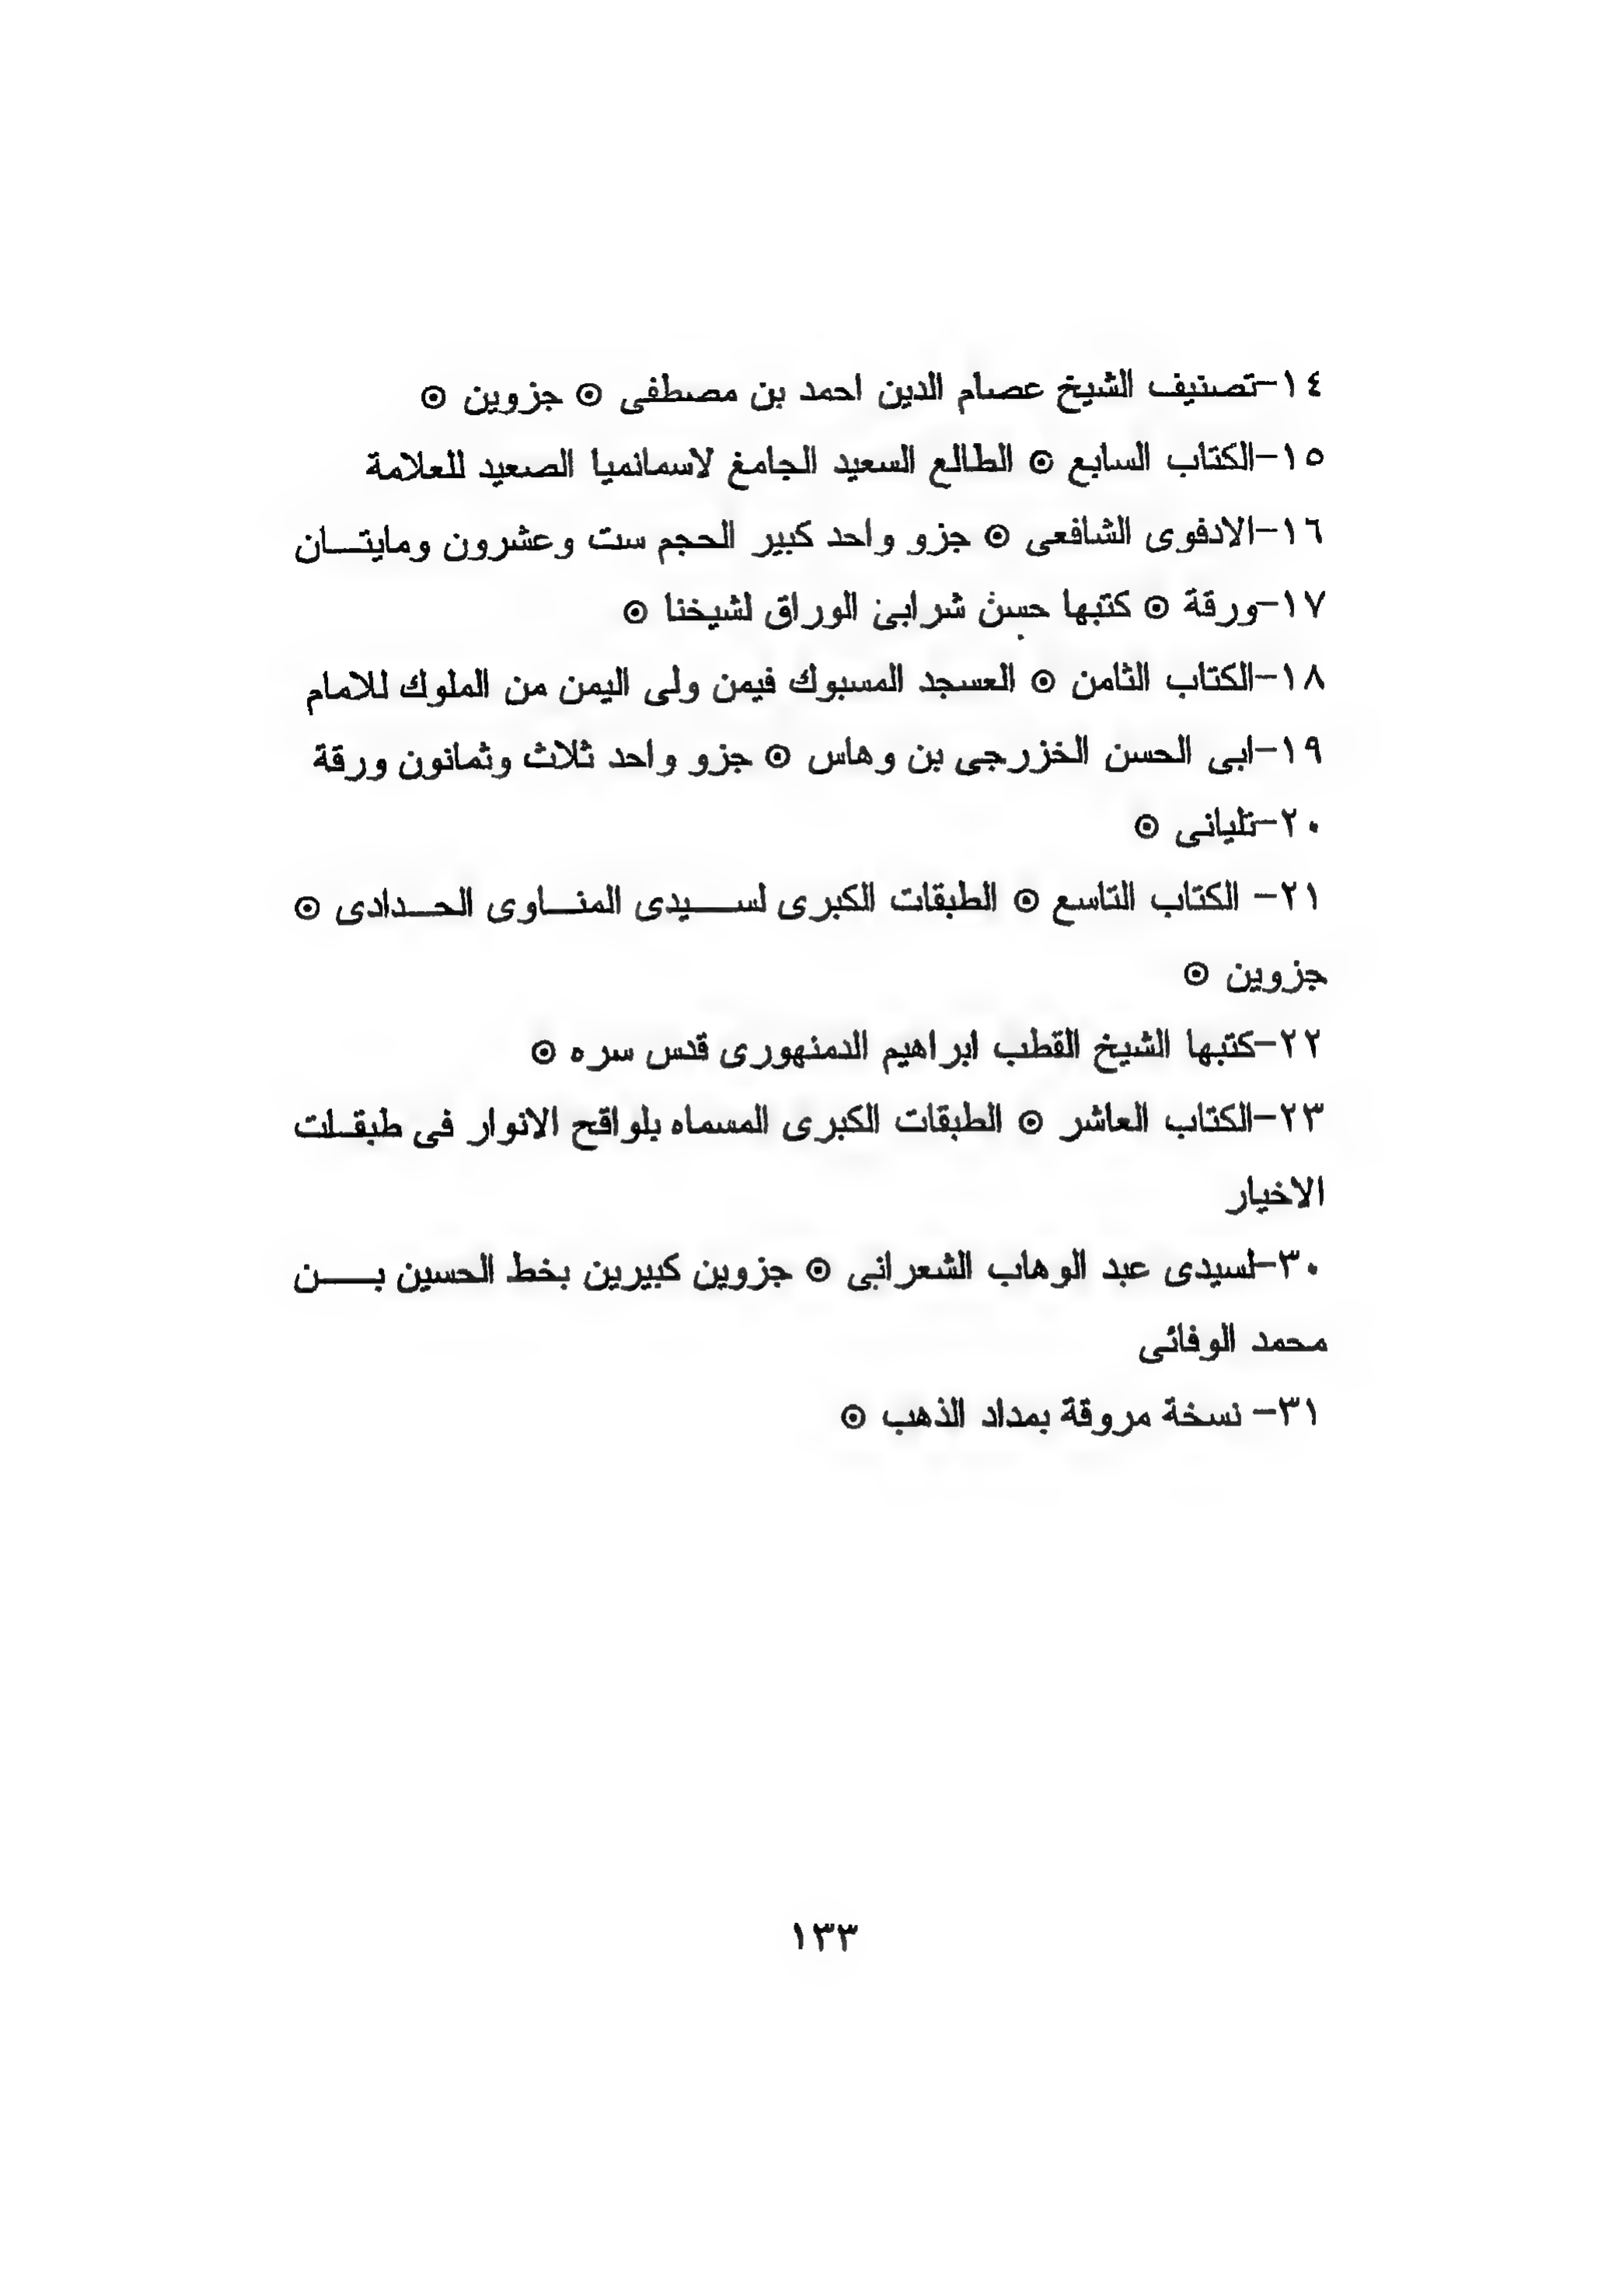 ١٤-تصنيف الشيخ عصام الدين احمد بن مصطفى ⊙ جزوين ⊙
١٥-الكتاب السابع ⊙ الطالع السعيد الجامغ لاسمانميا الصعيد للعلامة
١٦-الادفوى الشافعى ⊙ جزو واحد كبير الحجم ست وعشرون ومايتـــان
١٧-ورقة ⊙ كتبها حسن شرابى الوراق لشيخنا ⊙
١٨-الكتاب الثامن ⊙ العسجد المسبوك فيمن ولى اليمن من الملوك للامام
١٩-ابى الحسن الخزرجى بن وهاس ⊙ جزو واحد ثلاث وثمانون ورقة
٢٠-تليانى ⊙
٢١- الكتاب التاسع ⊙ الطبقات الكبرى لســـيدى المنــاوى الحــدادى ⊙
جزوين ⊙
٢٢-كتبها الشيخ القطب ابراهيم الدمنهورى قدس سره ⊙
٢٣-الكتاب العاشر ⊙ الطبقات الكبرى المسماه بلواقح الانوار فى طبقـلت
الاخيار
٣٠-لسيدى عبد الوهاب الشعرانى ⊙ جزوين كبيرين بخط الحسين بــــن
محمد الوفائى
٣١- نسخة مروقة بمداد الذهب ⊙
١٣٣